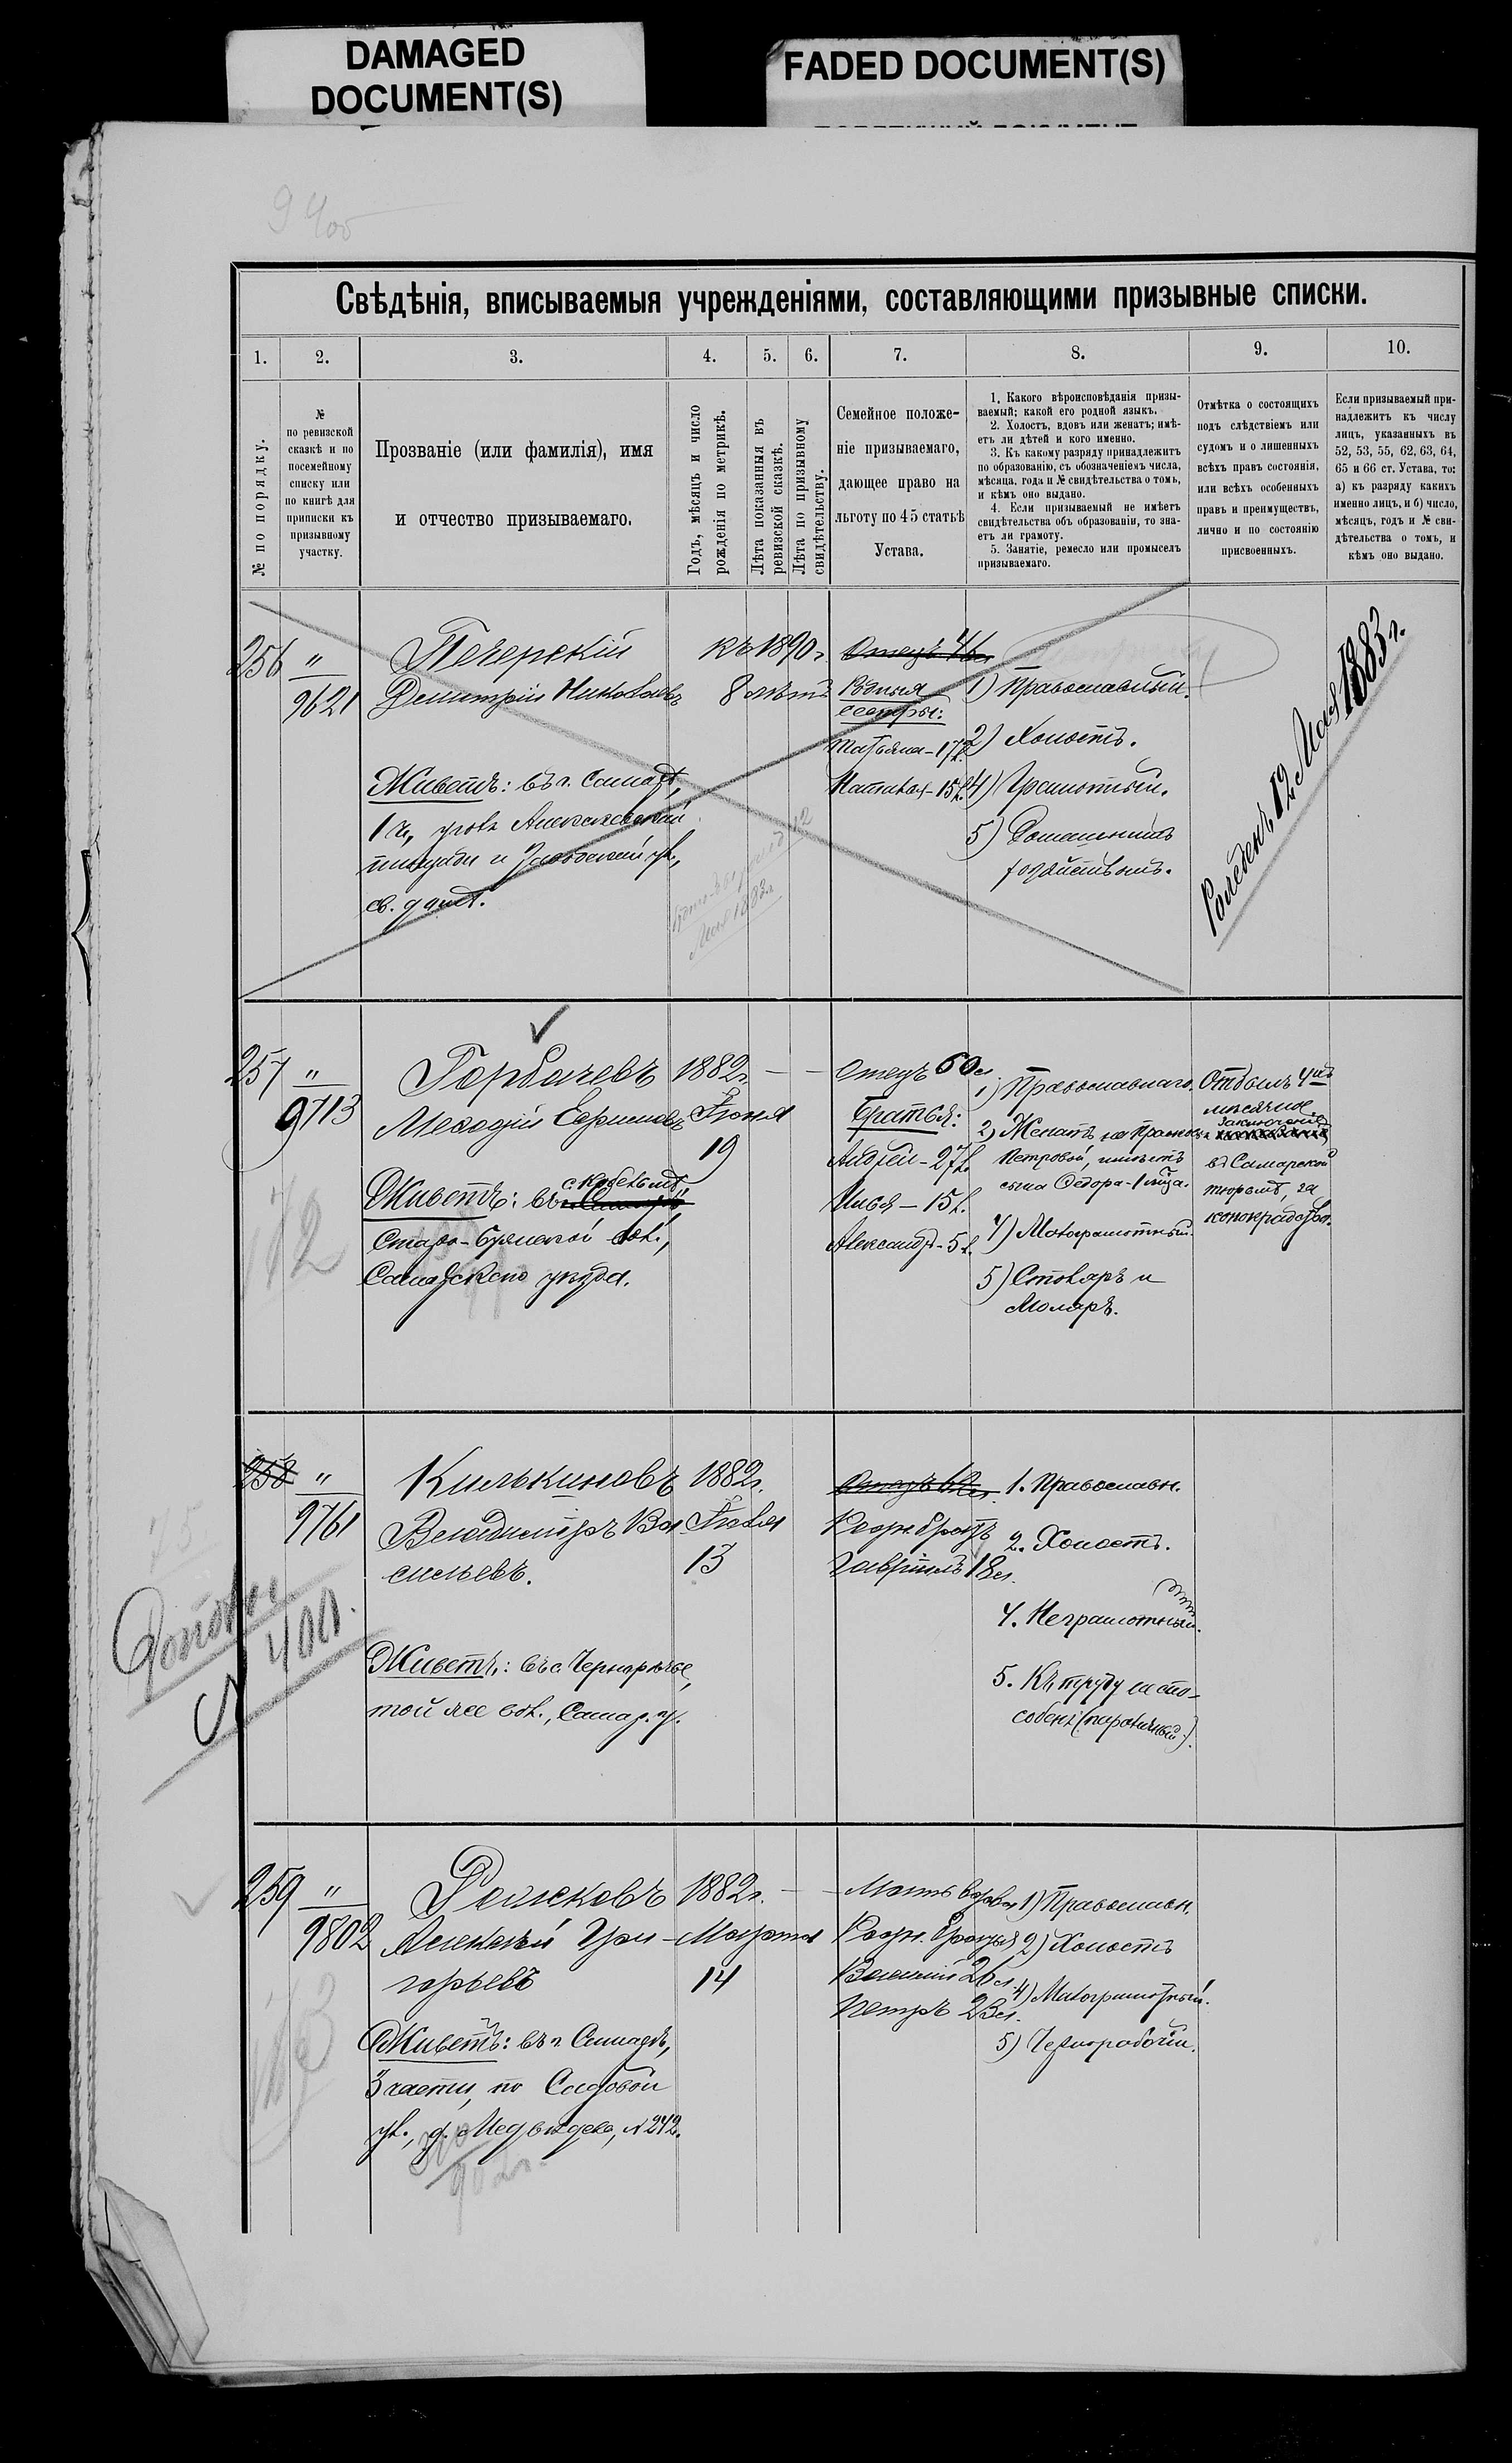 DAMAGED
DOCUMENT(S)
FADED DOCUMENT(S)
Свѣдѣнія, вписываемыя учрежденіями, составляющими призывные списки.
1. 2. 3. 4. 5. 6. 7. 8. 9. 10.
№ по порядку.
№
по ревизской
сказкѣ и по
посемейному
списку или
по книгѣ для
приписки къ
призывному
участку.
Прозваніе (или фамилія), имя
и отчество призываемаго.
Годъ, мѣсяцъ и число
рожденія по метрикѣ.
Лѣта показанныя въ
ревизской сказкѣ.
Лѣта по призывному
свидѣтельству.
Семейное положе-
ніе призываемаго,
дающее право на
льготу по 45 статьѣ
Устава.
1. Какого вѣроисповѣданія призы-
ваемый; какой его родной языкъ.
2. Холостъ, вдовъ или женатъ; имѣ-
етъ ли дѣтей и кого именно.
3. Къ какому разряду принадлежитъ
по образованію, съ обозначеніемъ числа,
мѣсяца, года и № свидѣтельства о томъ,
и кѣмъ оно выдано.
4. Если призываемый не имѣетъ
свидѣтельства объ образованіи, то зна-
етъ ли грамоту.
5. Занятіе, ремесло или промыселъ
призываемаго.
Отмѣтка о состоящихъ
подъ слѣдствіемъ или
судомъ и о лишенныхъ
всѣхъ правъ состоянія,
или всѣхъ особенныхъ
правъ и преимуществъ,
лично и по состоянію
присвоенныхъ.
Если призываемый при-
надлежитъ къ числу
лицъ, указанныхъ въ
52, 53, 55, 62, 63, 64,
65 и 66 ст. Устава, то:
а) къ разряду какихъ
именно лицъ, и б) число,
мѣсяцъ, годъ и № сви-
дѣтельства о томъ, и
кѣмъ оно выдано.
256 "
9621
Печерскій
Димитрій Николаевъ
Живетъ: въ г. Самарѣ,
1 ч., уголъ Алексѣевской
площади и Заводской ул.,
св. домъ.
Къ 1890 г.
8 лѣтъ
Отецъ 46 л.
Родныя
сестры:
Татьяна - 17 л.
Наталья - 15 л.
1) Православный.
2) Холостъ.
4) Грамотный.
5) Домашнимъ
хозяйствомъ.
Рожденъ 12 Мая 1883 г.
257 "
9713
Горбачевъ
Меѳодій Ефимовъ
Живетъ: въ
Старо-Буянской вол.,
Самарскаго уѣзда.
1882 г.
Іюня
19
Отецъ 60 л.
Братья:
Андрей - 27 л.
Илья - 15 л.
Александръ - 5 л.
1) Православнаго.
2) Женатъ на
Петровой, имѣетъ
сына Ѳедора - 1 мѣсяца.
4) Малограмотный.
5) Столяръ и
Маляръ.
Отбылъ 4хъ
мѣсячное
заключеніе
въ Самарской
тюрьмѣ, за
конокрадство.
258 "
9761
Килькиновъ
Владиміръ Ва
сильевъ.
Живетъ: въ с. Чернорѣчье,
той же вол., Самар. у.
1882 г.
Іюля
13
Отецъ 62 л.
Родн. братъ
Гавріилъ 18 л.
1. Православн.
2. Холостъ.
4. Неграмотный.
5. Къ труду не спо-
собенъ
259 "
9802
Рожковъ
Алексѣй Гри-
горьевъ
Живетъ: въ г. Самарѣ,
3 части, по Садовой
ул., д. Медвѣдева, № 242.
1882 г.
Марта
14
Мать вдова
Родн. братья
Василій 26 л.
Петръ 23 л.
1) Православн.
2) Холостъ
4) Малограмотный.
5) Чернорабочій.